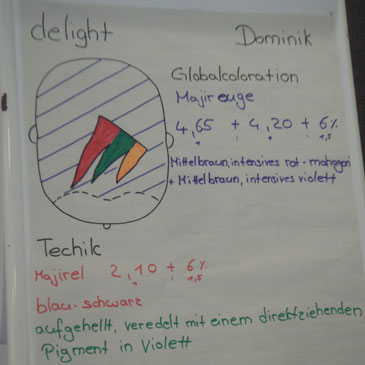 delight
Dominik
Globalcoloration
Majirouge
4,65 + 4,20 + 6%
1 : 1 : 1,5
Mittelbraun, intensives rot-mahagoni
+ Mittelbraun, intensives violett
Techik
Majirel 2,10 + 6%
1 : 1,5
blau-schwarz
aufgehellt, veredelt mit einem direktziehenden
Pigment in Violett